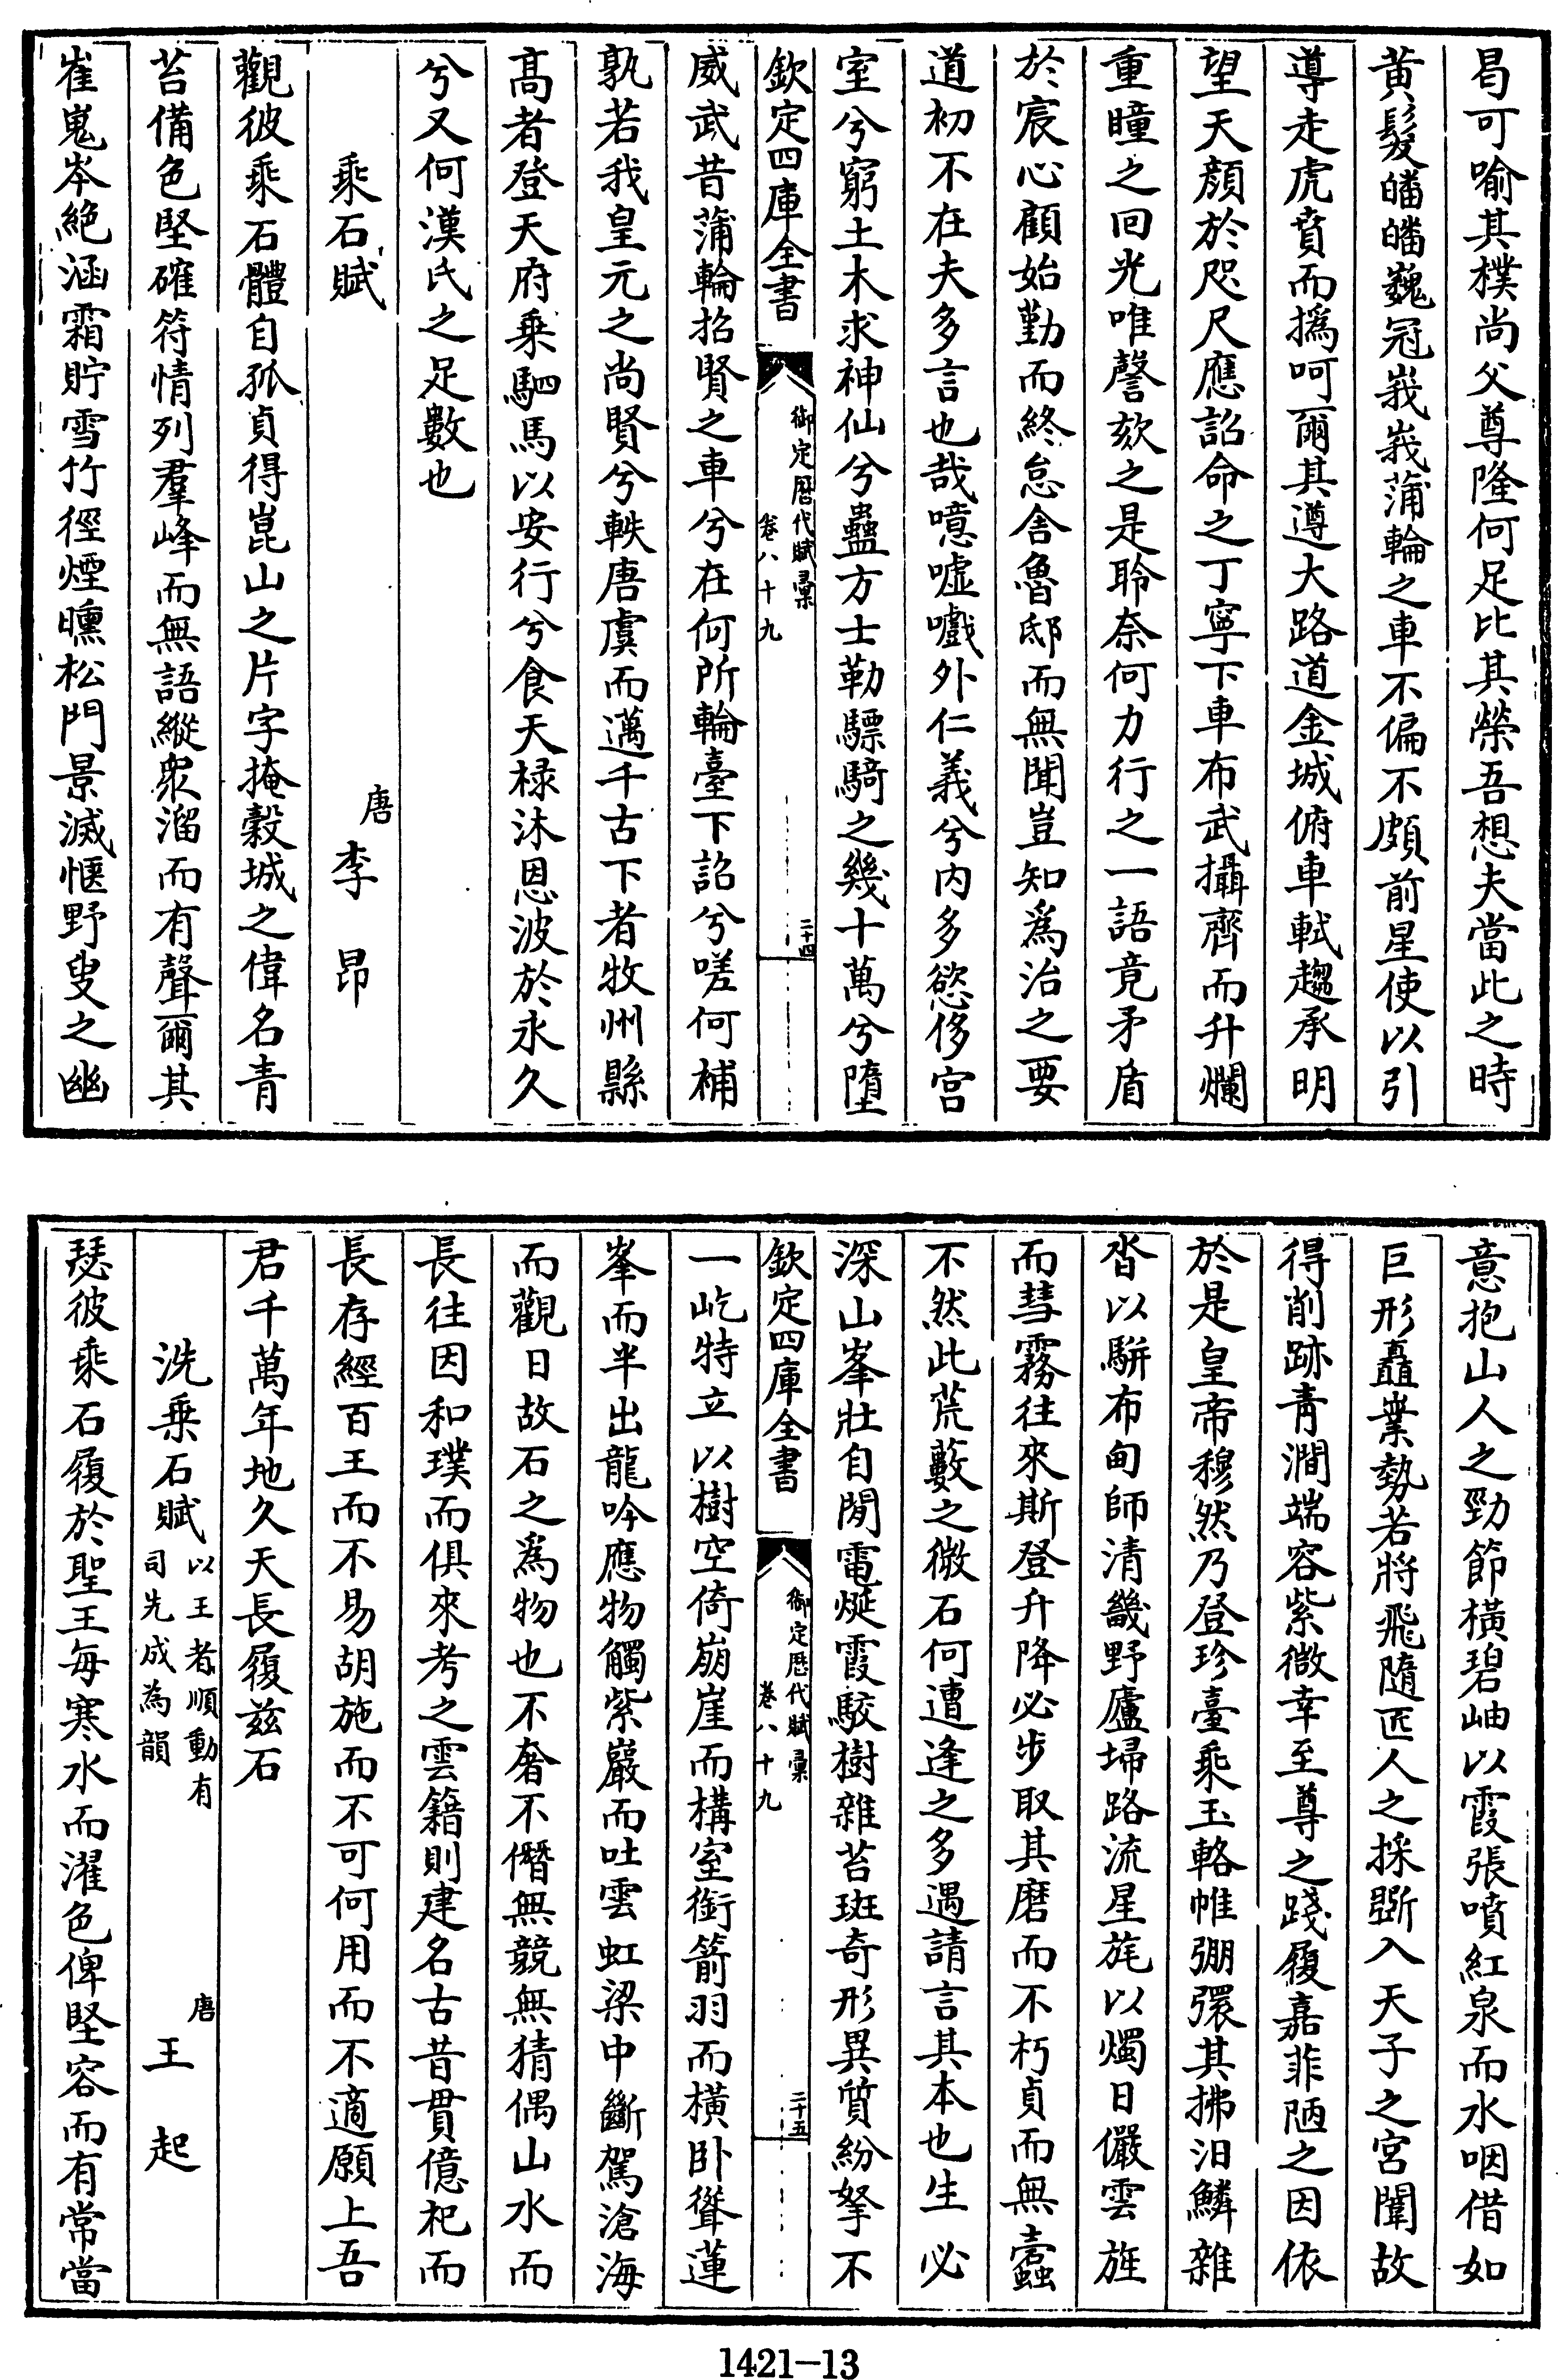 曷可喻其樸尚父尊隆何足比其榮吾想夫當此之時
黄髪皤皤巍冠峩峩蒲輪之車不偏不頗前星使以引
導走虎賁而撝呵爾其遵大路道金城俯車軾趨承明
望天顔於咫尺應詔命之丁寧下車布武攝齊而升爛
重瞳之回光唯謦欬之是聆奈何力行之一語竟矛盾
於宸心顧始勤而終怠舍魯邸而無聞豈知為治之要
道初不在夫多言也哉噫嘘嚱外仁義兮内多慾侈宫
室兮窮土木求神仙兮蠱方士勒驃騎之幾十萬兮墮
欽定四庫全書
御定歷代賦彙
卷八十九
二十四
威武昔蒲輪招賢之車兮在何所輪臺下詔兮嗟何補
孰若我皇元之尚賢兮軼唐虞而邁千古下者牧州縣
髙者登天府乘駟馬以安行兮食天禄沐恩波於永久
兮又何漢氏之足數也
乘石賦
唐
李昂
觀彼乘石體自孤貞得崑山之片字掩糓城之偉名青
苔備色堅確符情列羣峰而無語縱衆溜而有聲爾其
崔嵬岑絶涵霜貯雪竹徑煙曛松門景滅愜野叟之幽
意抱山人之勁節橫碧岫以霞張噴紅泉而水咽借如
巨形矗嶪勢若將飛隨匠人之採斲入天子之宮闈故
得削跡青澗端容紫微幸至尊之踐履嘉菲陋之因依
於是皇帝穆然乃登珍臺乘玉輅帷弸彋其拂汨鱗雜
沓以駢布甸師清畿野廬埽路流星旄以燭日儼雲旌
而彗霧往來斯登升降必步取其磨而不朽貞而無蠹
不然此荒藪之微石何遭逢之多遇請言其本也生必
深山峯壯自閒電烻霞駮樹雜苔斑奇形異質紛拏不
欽定四庫全書
御定歷代賦彙
卷八十九
二十五
一屹特立以樹空倚崩崖而構室銜箭羽而橫卧聳蓮
峯而半出龍吟應物觸紫巖而吐雲虹梁中斷駕滄海
而觀日故石之為物也不奢不僭無競無猜偶山水而
長往因和璞而俱來考之雲籍則建名古昔貫億祀而
長存經百王而不易胡施而不可何用而不適願上吾
君千萬年地久天長履兹石
洗乗石賦
以王者順動有
司先成為韻
唐
王起
瑟彼乘石履於聖王每寒水而濯色俾堅容而有常當
1421-13